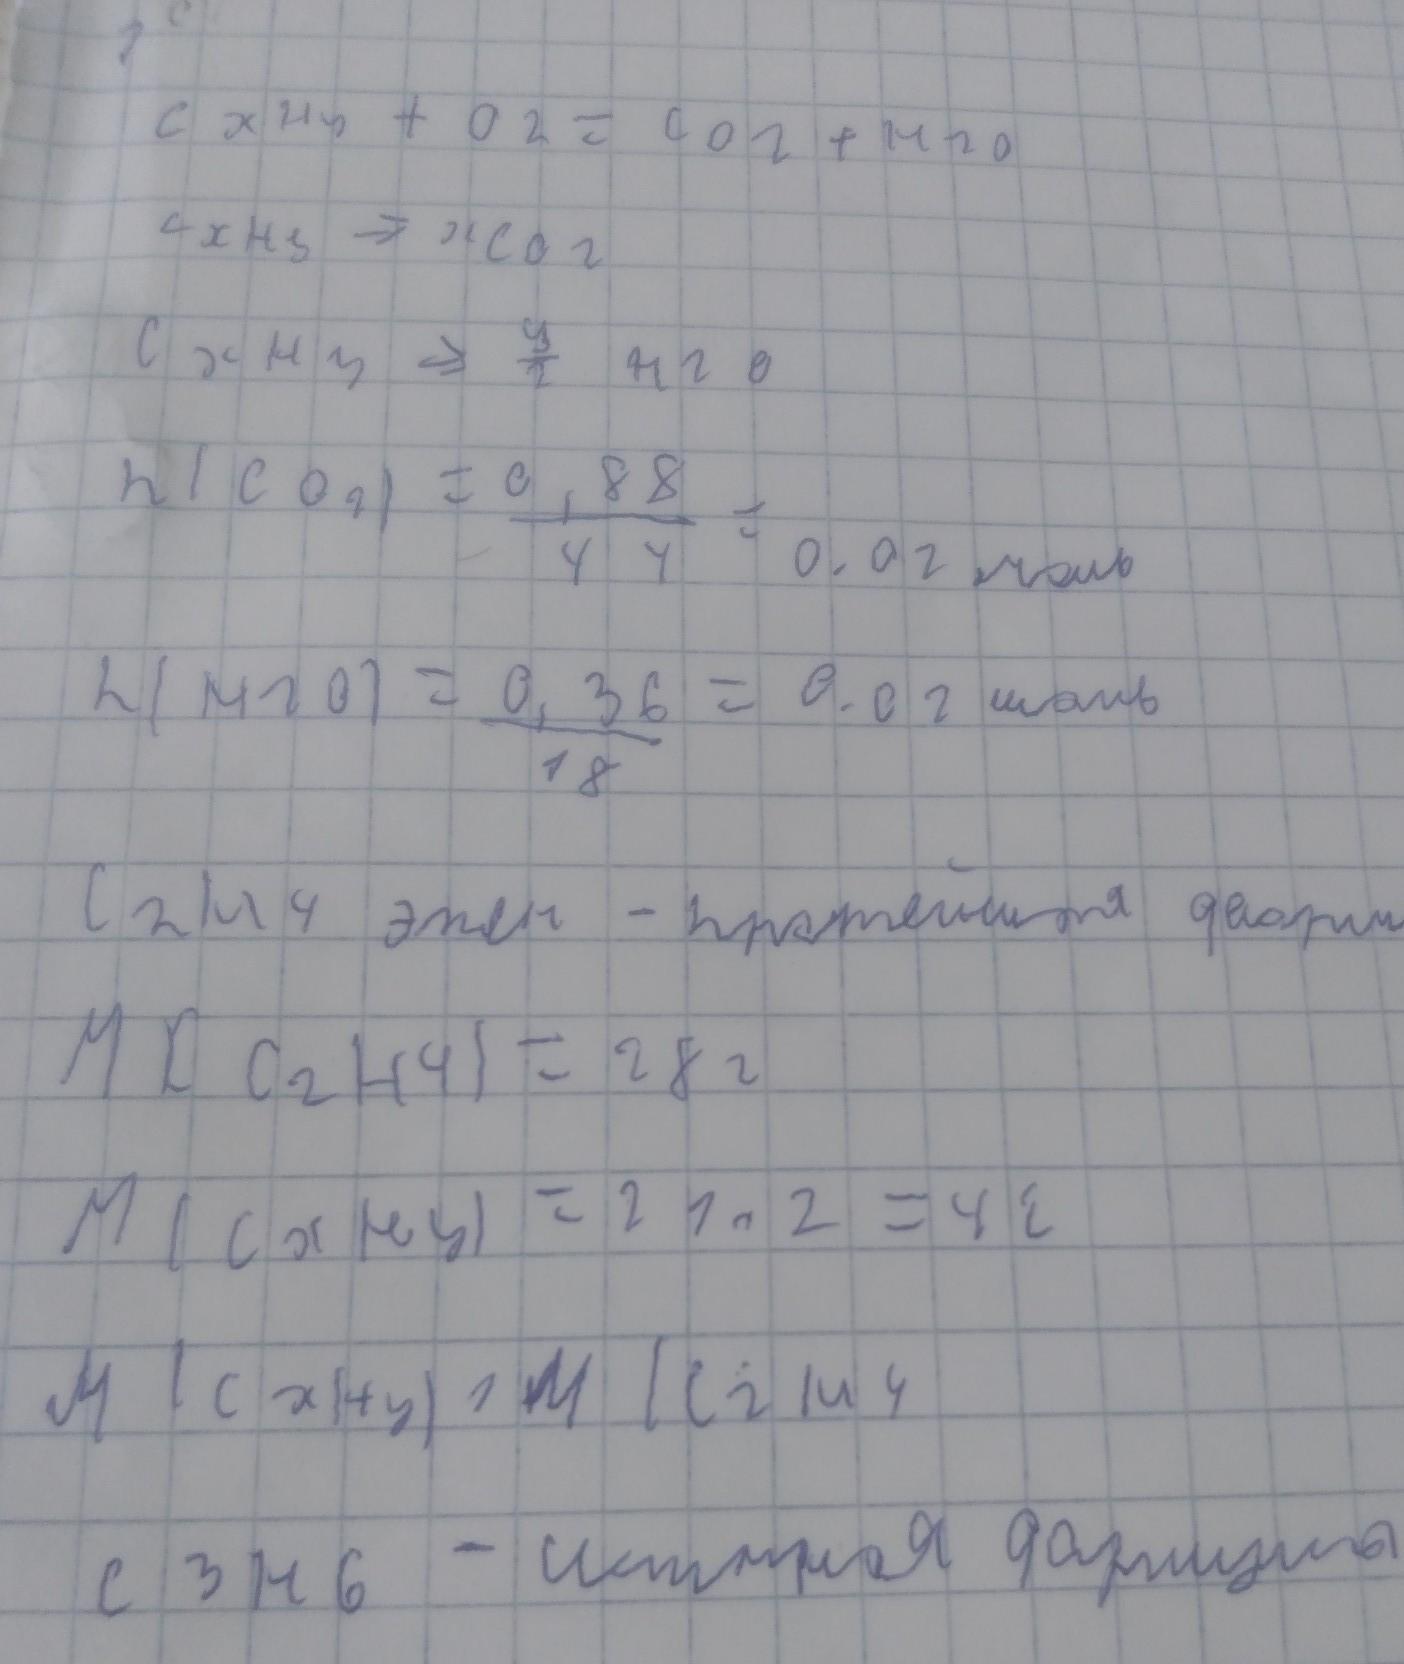 1
CxHy + O2 = CO2 + H2O
CxHy → xCO2
CxHy → y/2 H2O
n(CO2) = 0,88/44 = 0.02 моль
n(H2O) = 0,36/18 = 0.02 моль
C2H4 этен - простейшая форм
M(C2H4) = 28г
M(CxHy) = 21.2 = 42
M(CxHy) > M(C2H4
C3H6 - истиная формула